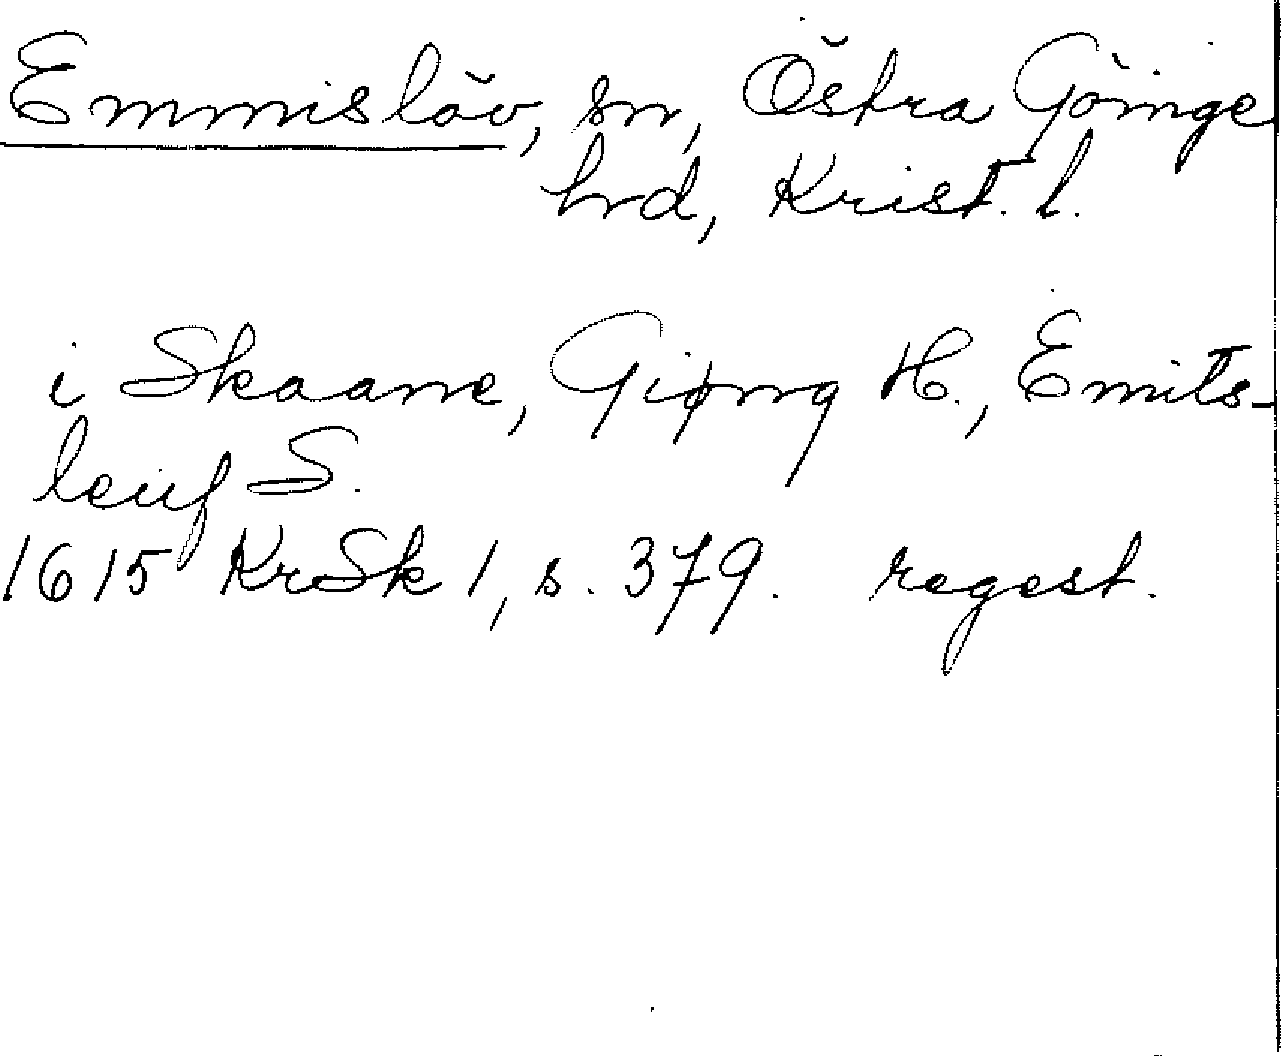 Emmislöv, sn, Östra Göinge
hrd, Krist. l.
i Skaane, Giøng H., Emits-
leuf S.
1615 KrSk 1, s. 379. regest.